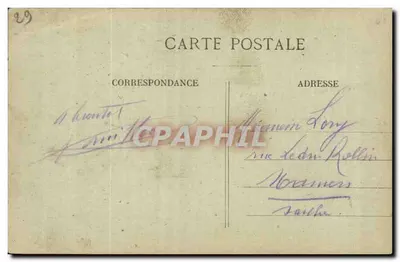 29
CARTE POSTALE
CORRESPONDANCE
ADRESSE
A bientôt
CPAPHIL
Lory
rue Ledru Rollin
Mamers
Sarthe